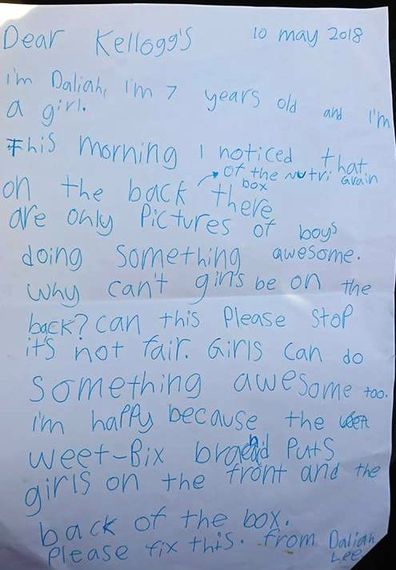 Dear Kellogg's 10 may 2018
i'm Daliah, i'm 7 years old and i'm
a girl.
This morning i noticed that
on the back of the nutri Grain box there
are only Pictures of boys
doing something awesome.
why can't girls be on the
back? can this Please stop
it's not fair. Girls can do
something awesome too.
i'm happy because the
weet-Bix brand Puts
girls on the front and the
back of the box.
Please fix this. from Daliah
Lee